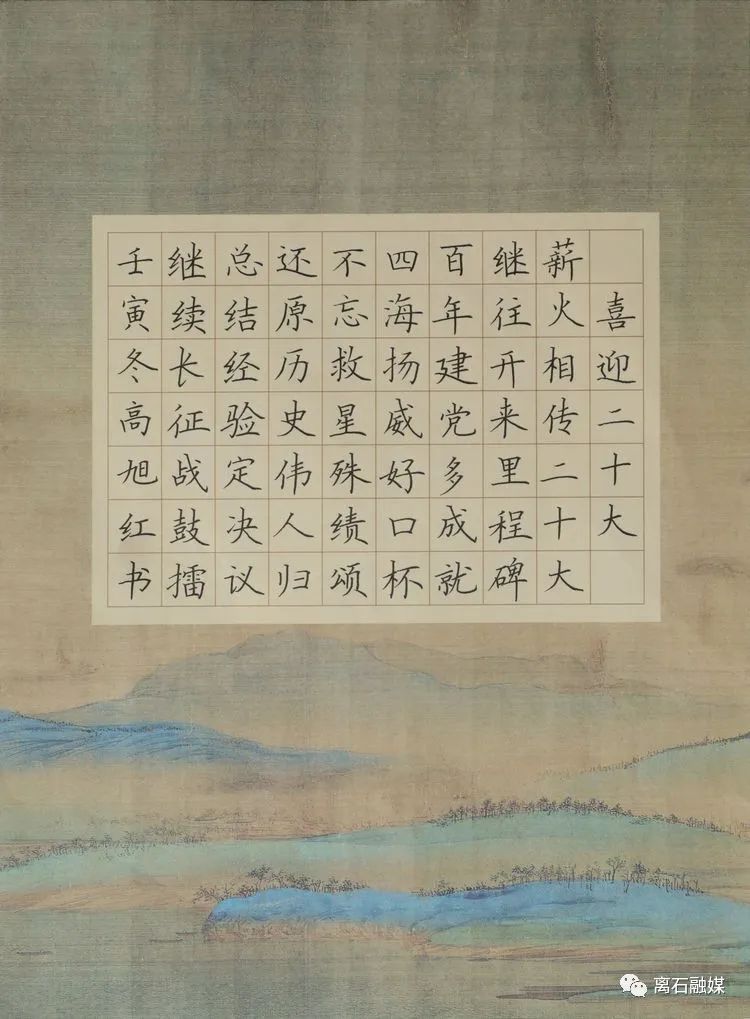 喜迎二十大
薪火相传二十大
继往开来里程碑
百年建党多成就
四海扬威好口杯
不忘救星殊绩颂
还原历史伟人归
总结经验定决议
继续长征战鼓擂
壬寅冬高旭红书
离石融媒